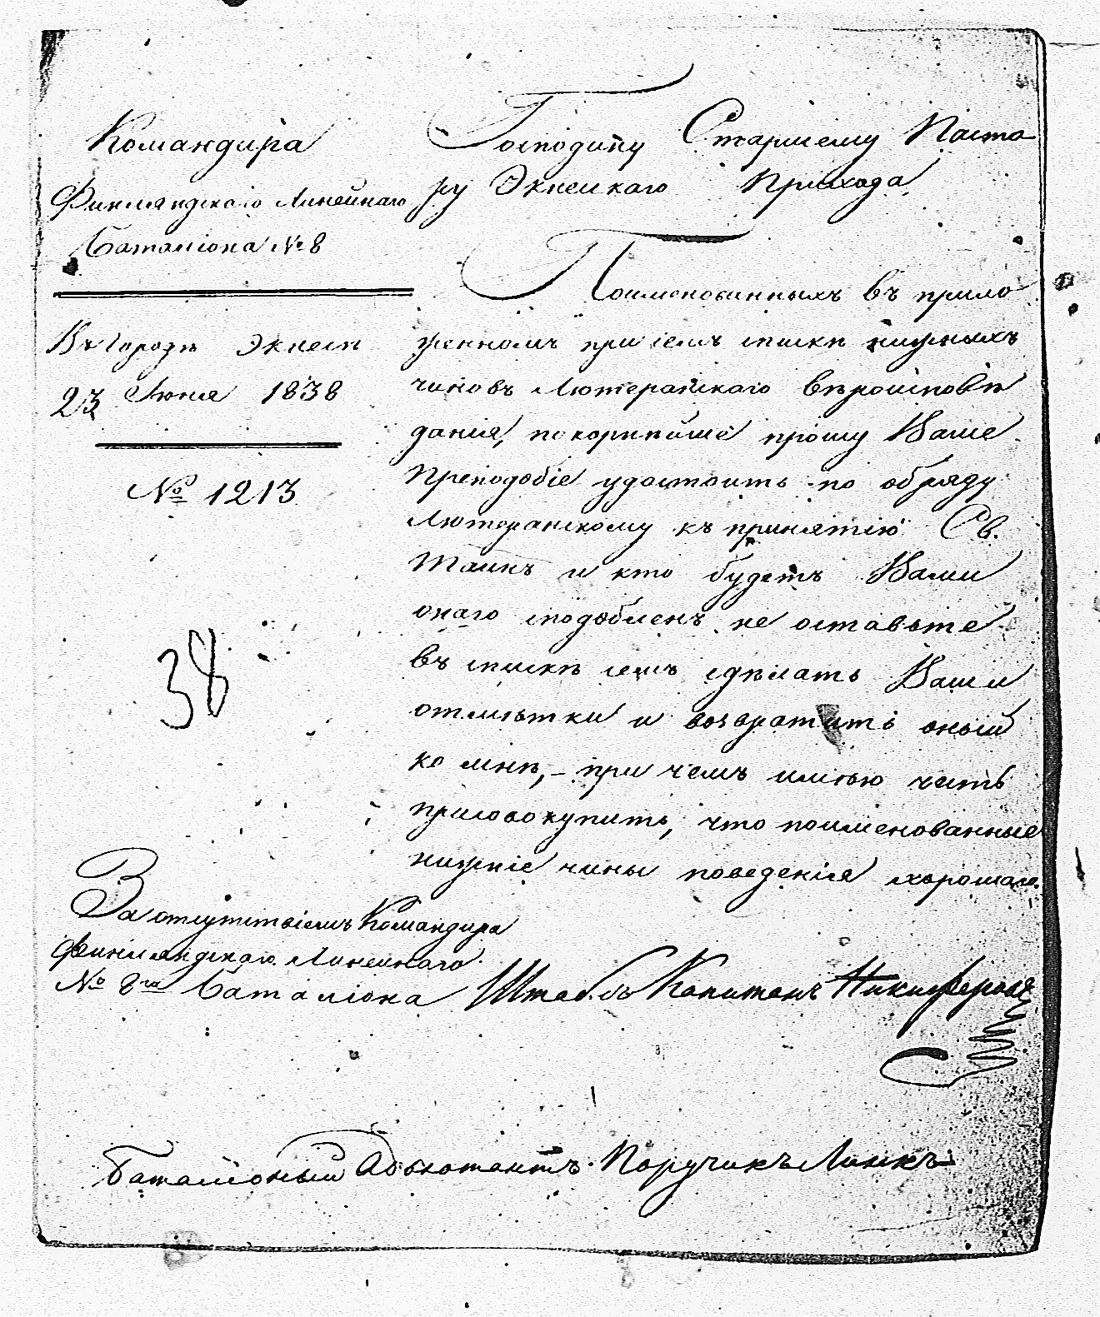 Командира
Финляндскаго Линейнаго
Баталіона № 8
Въ городѣ Экнесѣ
23 Июня 1838
№ 1213
38
Господину Старшему Пасто
ру Экнескаго Прихода
Поименованныхъ въ прило
женномъ при семъ спискѣ нижныхъ
чиновъ Лютеранскаго вѣроисповѣ
данія, покорнѣйше прошу Ваше
Преподобіе удостоить по обряду
Лютеранскому къ принятію Св.
Таинъ и кто будетъ Вами
онаго сподобленъ не оставьте
въ спискѣ семъ сдѣлать Ваши
отмѣтки и возвратить оный
ко мнѣ, – при чемъ имѣю честь
присовокупить, что поименованные
нижніе чины поведенія хорошаго.
За отсутствіемъ Командира
Финляндскаго Линейнаго
№ 8го Баталіона Штабсъ Капитанъ Никифоровъ
Баталіоный Адъютантъ Поручикъ Линкъ